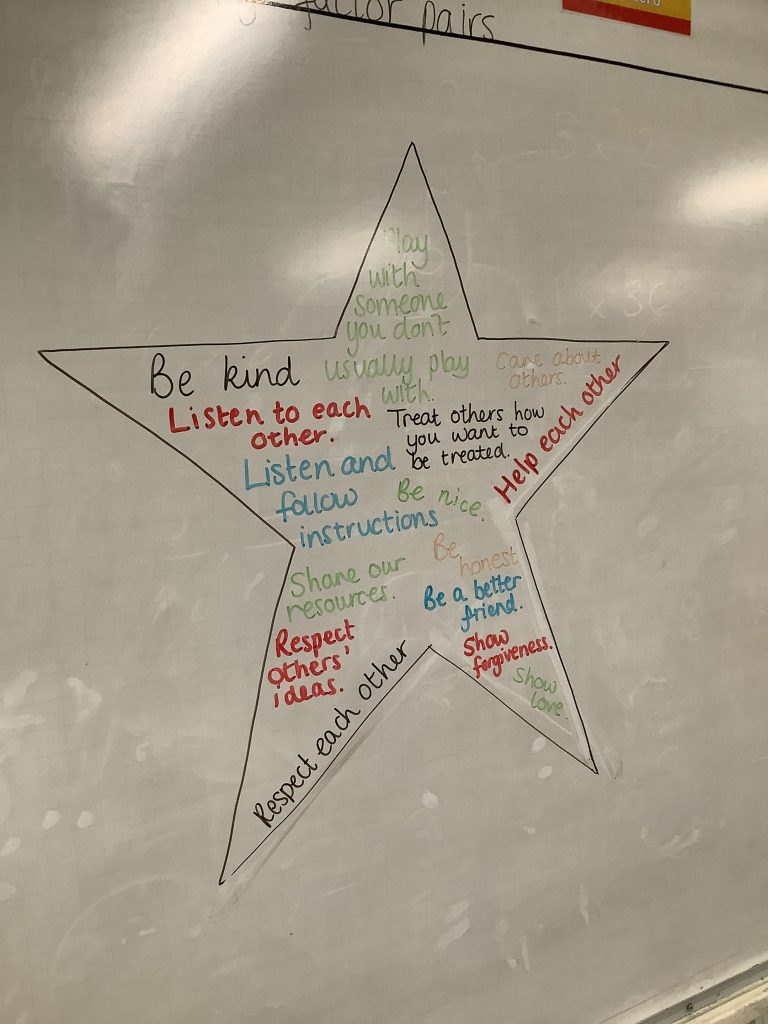 factor pairs
Play
with
someone
you don't
usually play
with.
Be kind
Care about
others.
Listen to each
other.
Treat others how
you want to
be treated.
Help each other
Listen and
follow
instructions
Be nice.
Be
honest
Share our
resources.
Be a better
friend.
Respect
others'
ideas.
Show
forgiveness.
Show
love.
Respect each other